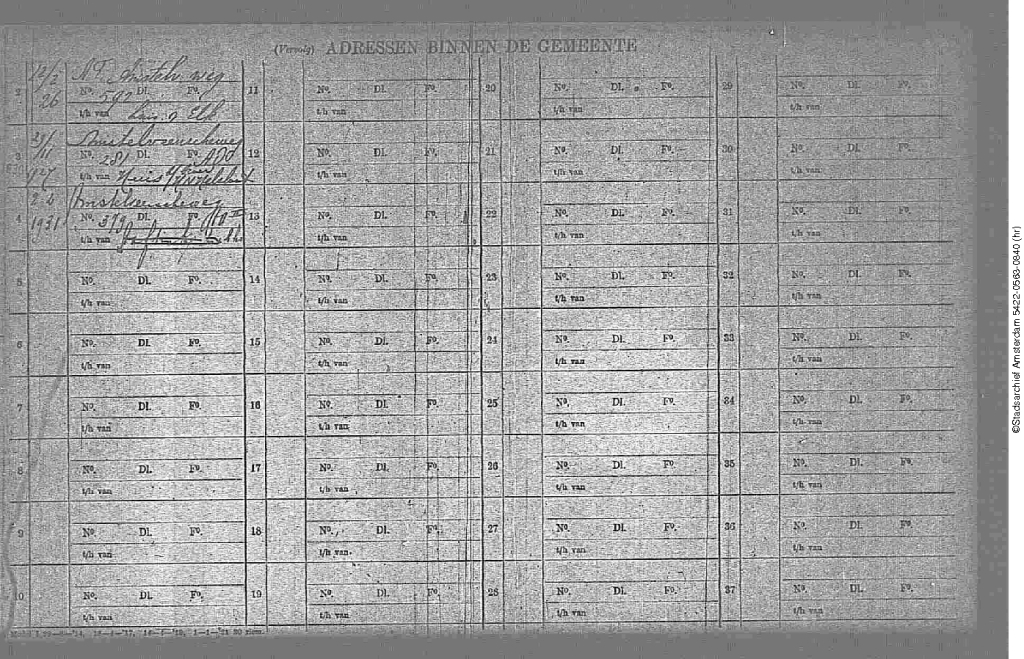 (Vervolg) ADRESSEN BINNEN DE GEMEENTE
12/2 N.P. Amstelv. weg
2 26 No. 592 Dl. Fo.
t/h van
Amstelveenscheweg
3 No. 281 Dl. Fo.
'27 t/h van Huis
2 4 Amstelveenscheweg
4 1931 No. 379 Dl. Fo.
t/h van
5 No. Dl. Fo.
t/h van
6 No. Dl. Fo.
t/h van
7 No. Dl. Fo.
t/h van
8 No. Dl. Fo.
t/h van
9 No. Dl. Fo.
t/h van
10 No. Dl. Fo.
t/h van
11 No. Dl. Fo.
t/h van
12 No. Dl. Fo.
t/h van
13 No. Dl. Fo.
t/h van
14 No. Dl. Fo.
t/h van
15 No. Dl. Fo.
t/h van
16 No. Dl. Fo.
t/h van
17 No. Dl. Fo.
t/h van
18 No. Dl. Fo.
t/h van
19 No. Dl. Fo.
t/h van
20 No. Dl. Fo.
t/h van
21 No. Dl. Fo.
t/h van
22 No. Dl. Fo.
t/h van
23 No. Dl. Fo.
t/h van
24 No. Dl. Fo.
t/h van
25 No. Dl. Fo.
t/h van
26 No. Dl. Fo.
t/h van
27 No. Dl. Fo.
t/h van
28 No. Dl. Fo.
t/h van
29 No. Dl. Fo.
t/h van
30 No. Dl. Fo.
t/h van
31 No. Dl. Fo.
t/h van
32 No. Dl. Fo.
t/h van
33 No. Dl. Fo.
t/h van
34 No. Dl. Fo.
t/h van
35 No. Dl. Fo.
t/h van
36 No. Dl. Fo.
t/h van
37 No. Dl. Fo.
t/h van
©Stadsarchief Amsterdam 5422-0563-0840 (hr)